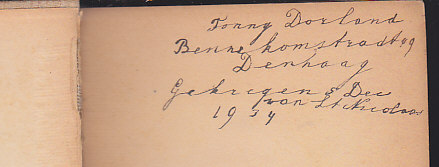 Tonny Dorland
Bennekomstraat 99
Denhaag
Gekregen 5 Dec
van St Nicolaas
1934